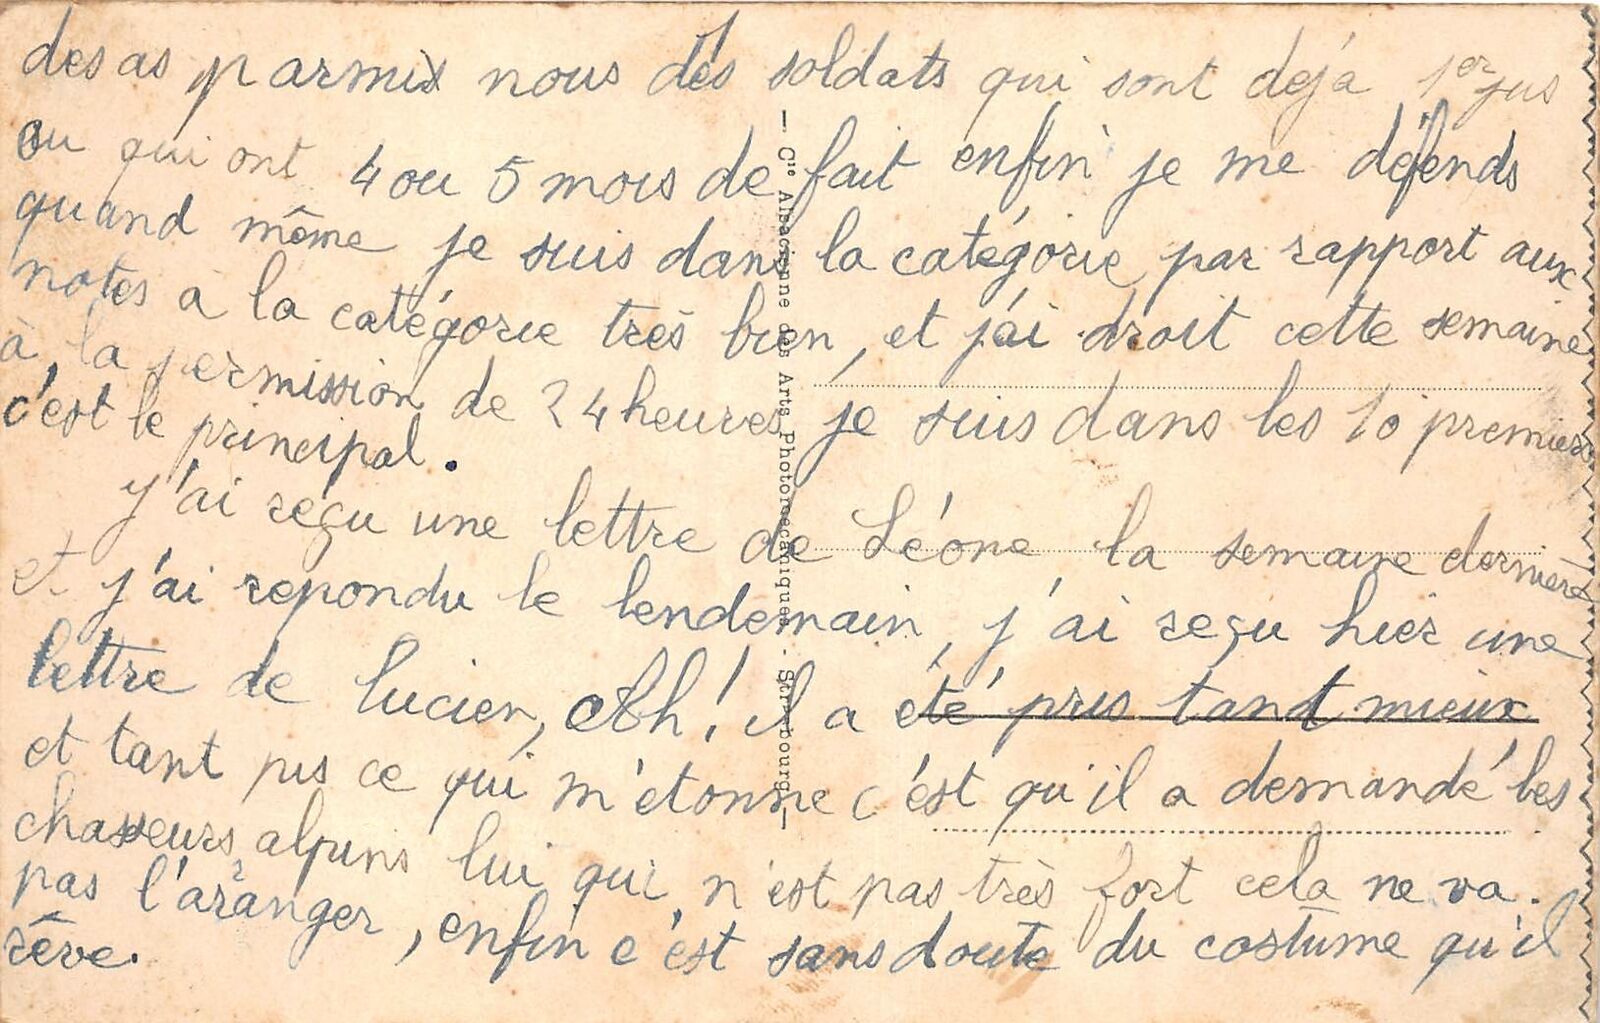 des as parmis nous des soldats qui sont déjà 1er jus
ou qui ont 4 ou 5 mois de fait enfin je me défends
quand même je suis dans la catégorie par rapport aux
notes a la catégorie très bien, et j'ai droit cette semaine
à la permission de 24 heures, je suis dans les 10 premiers
c'est le principal.
J'ai reçu une lettre de Léone la semaine dernière
et j'ai repondu le lendemain, j'ai reçu hier une
lettre de Lucien, Ah! il a été pris tant mieux
et tant pis ce qui m'étonne c'est qu'il a demandé les
chasseurs alpins lui qui n'est pas très fort cela ne va
pas l'arranger, enfin c'est sans doute du costume qu'il
rêve.
— Cie Alsacienne des Arts Photomécaniques - Strasbourg —